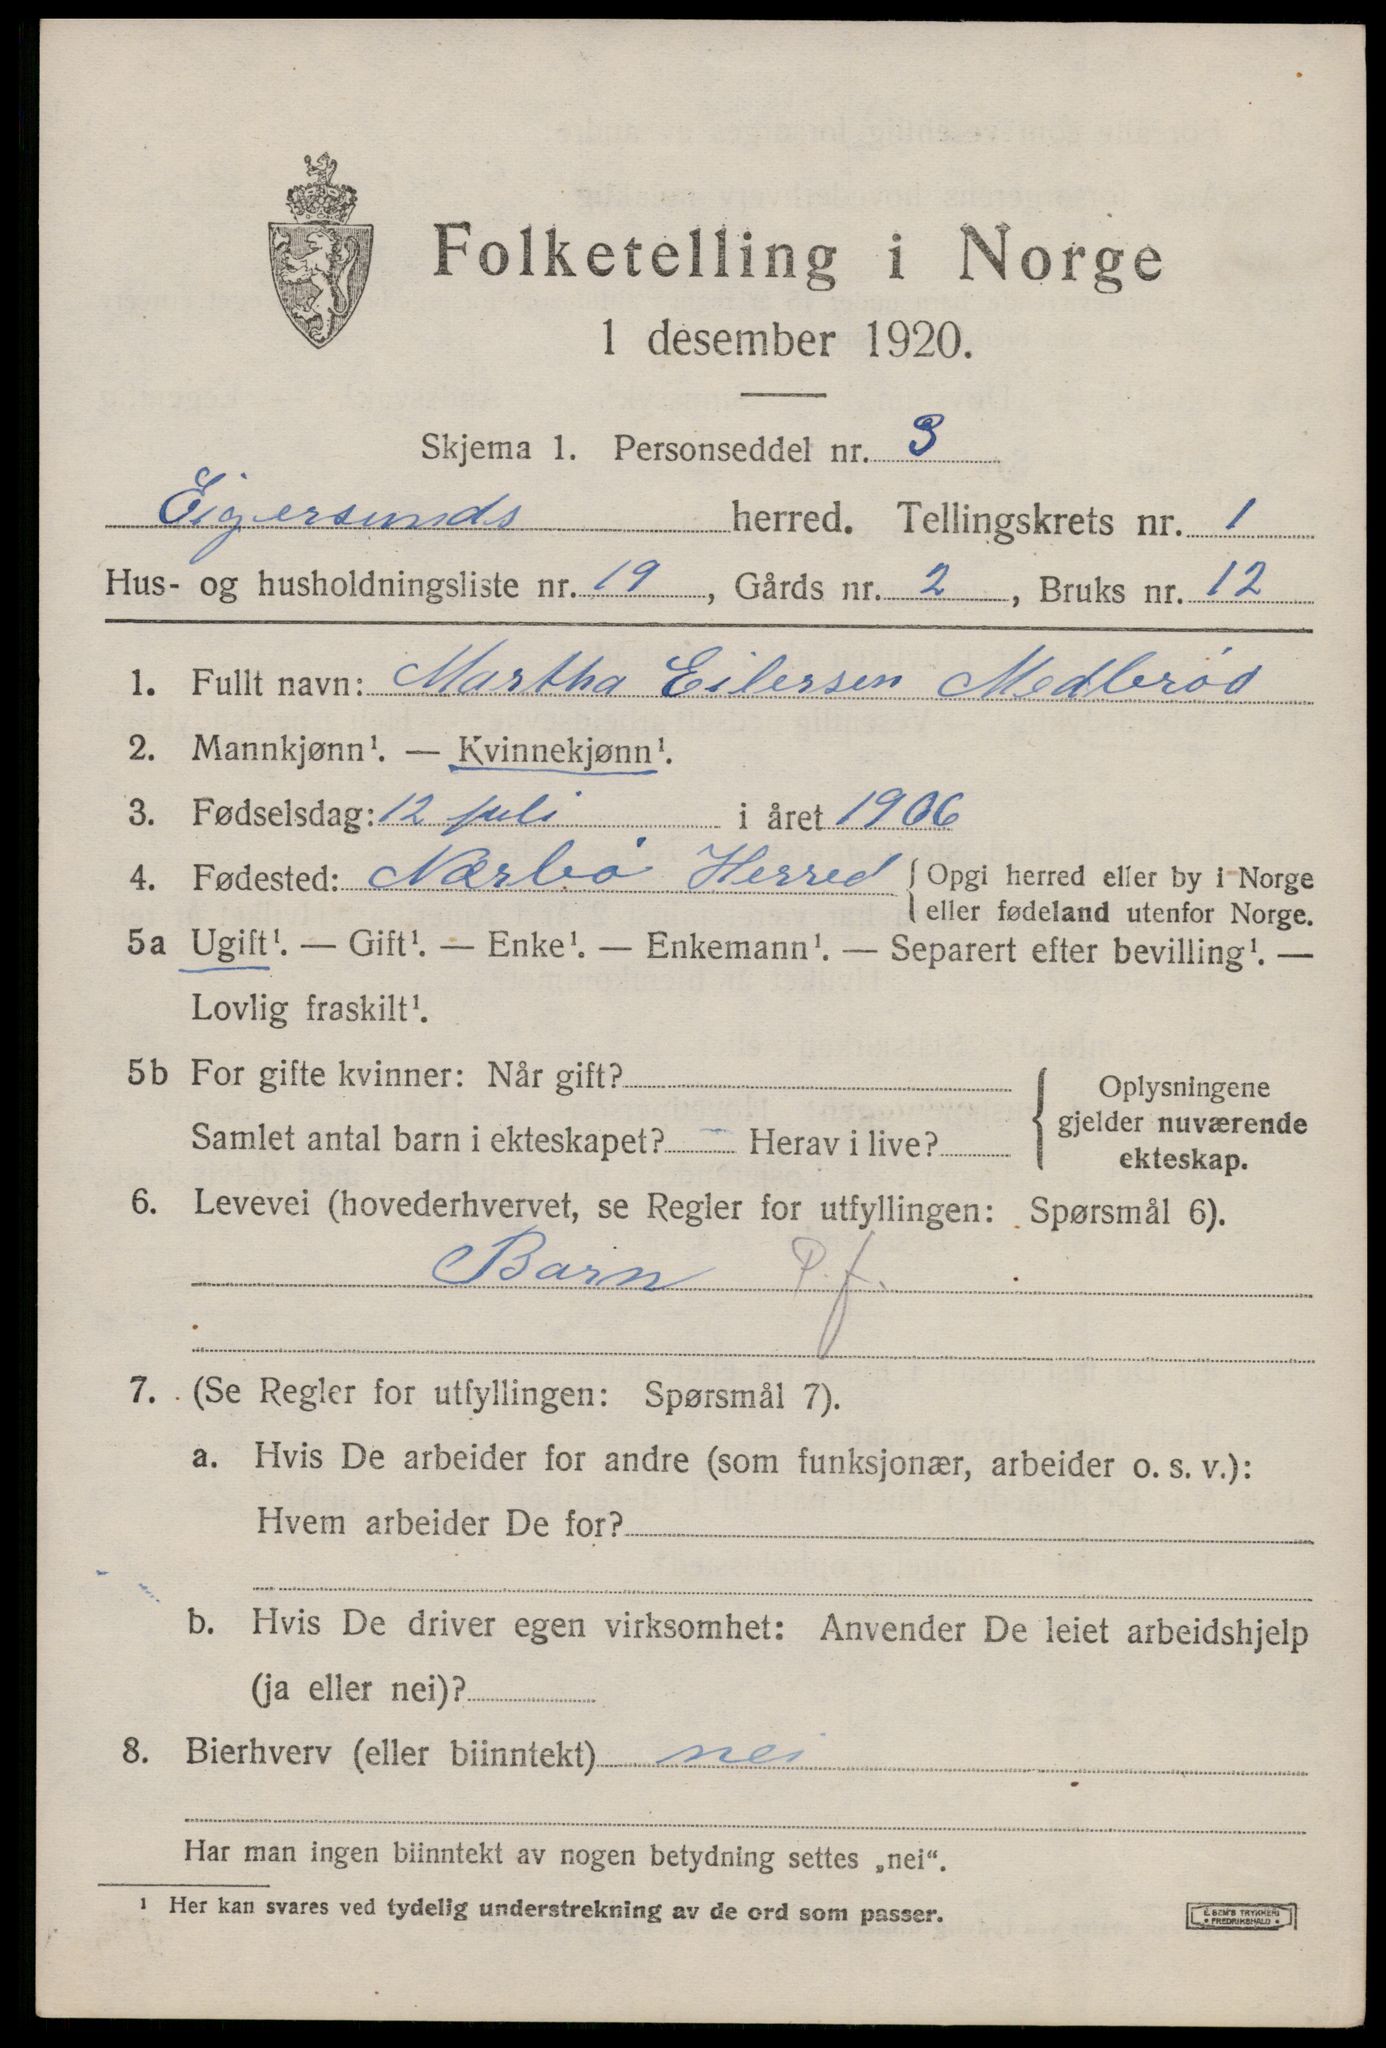 Folketelling i Norge
1 desember 1920.
Skjema 1. Personseddel nr. 3
Eigersunds herred. Tellingskrets nr. 1
Hus- og husholdningsliste nr. 19, Gårds nr. 2, Bruks nr. 12
1. Fullt navn: Martha Eilersen Medbrød
2. Mannkjønn¹. — Kvinnekjønn¹.
3. Fødselsdag: 12 juli i året 1906
4. Fødested: Nærbø Herred { Opgi herred eller by i Norge
eller fødeland utenfor Norge.
5a Ugift¹. — Gift¹. — Enke¹. — Enkemann¹. — Separert efter bevilling¹. —
Lovlig fraskilt¹.
5b For gifte kvinner: Når gift?
Samlet antal barn i ekteskapet? Herav i live?
{ Oplysningene
gjelder nuværende
ekteskap.
6. Levevei (hovederhvervet, se Regler for utfyllingen: Spørsmål 6).
Barn P.f.
7. (Se Regler for utfyllingen: Spørsmål 7).
a. Hvis De arbeider for andre (som funksjonær, arbeider o. s. v.):
Hvem arbeider De for?
b. Hvis De driver egen virksomhet: Anvender De leiet arbeidshjelp
(ja eller nei)?
8. Bierhverv (eller biinntekt) nei
Har man ingen biinntekt av nogen betydning settes „nei“.
¹ Her kan svares ved tydelig understrekning av de ord som passer.
E. SEM'S TRYKKERI
• FREDRIKSHALD •